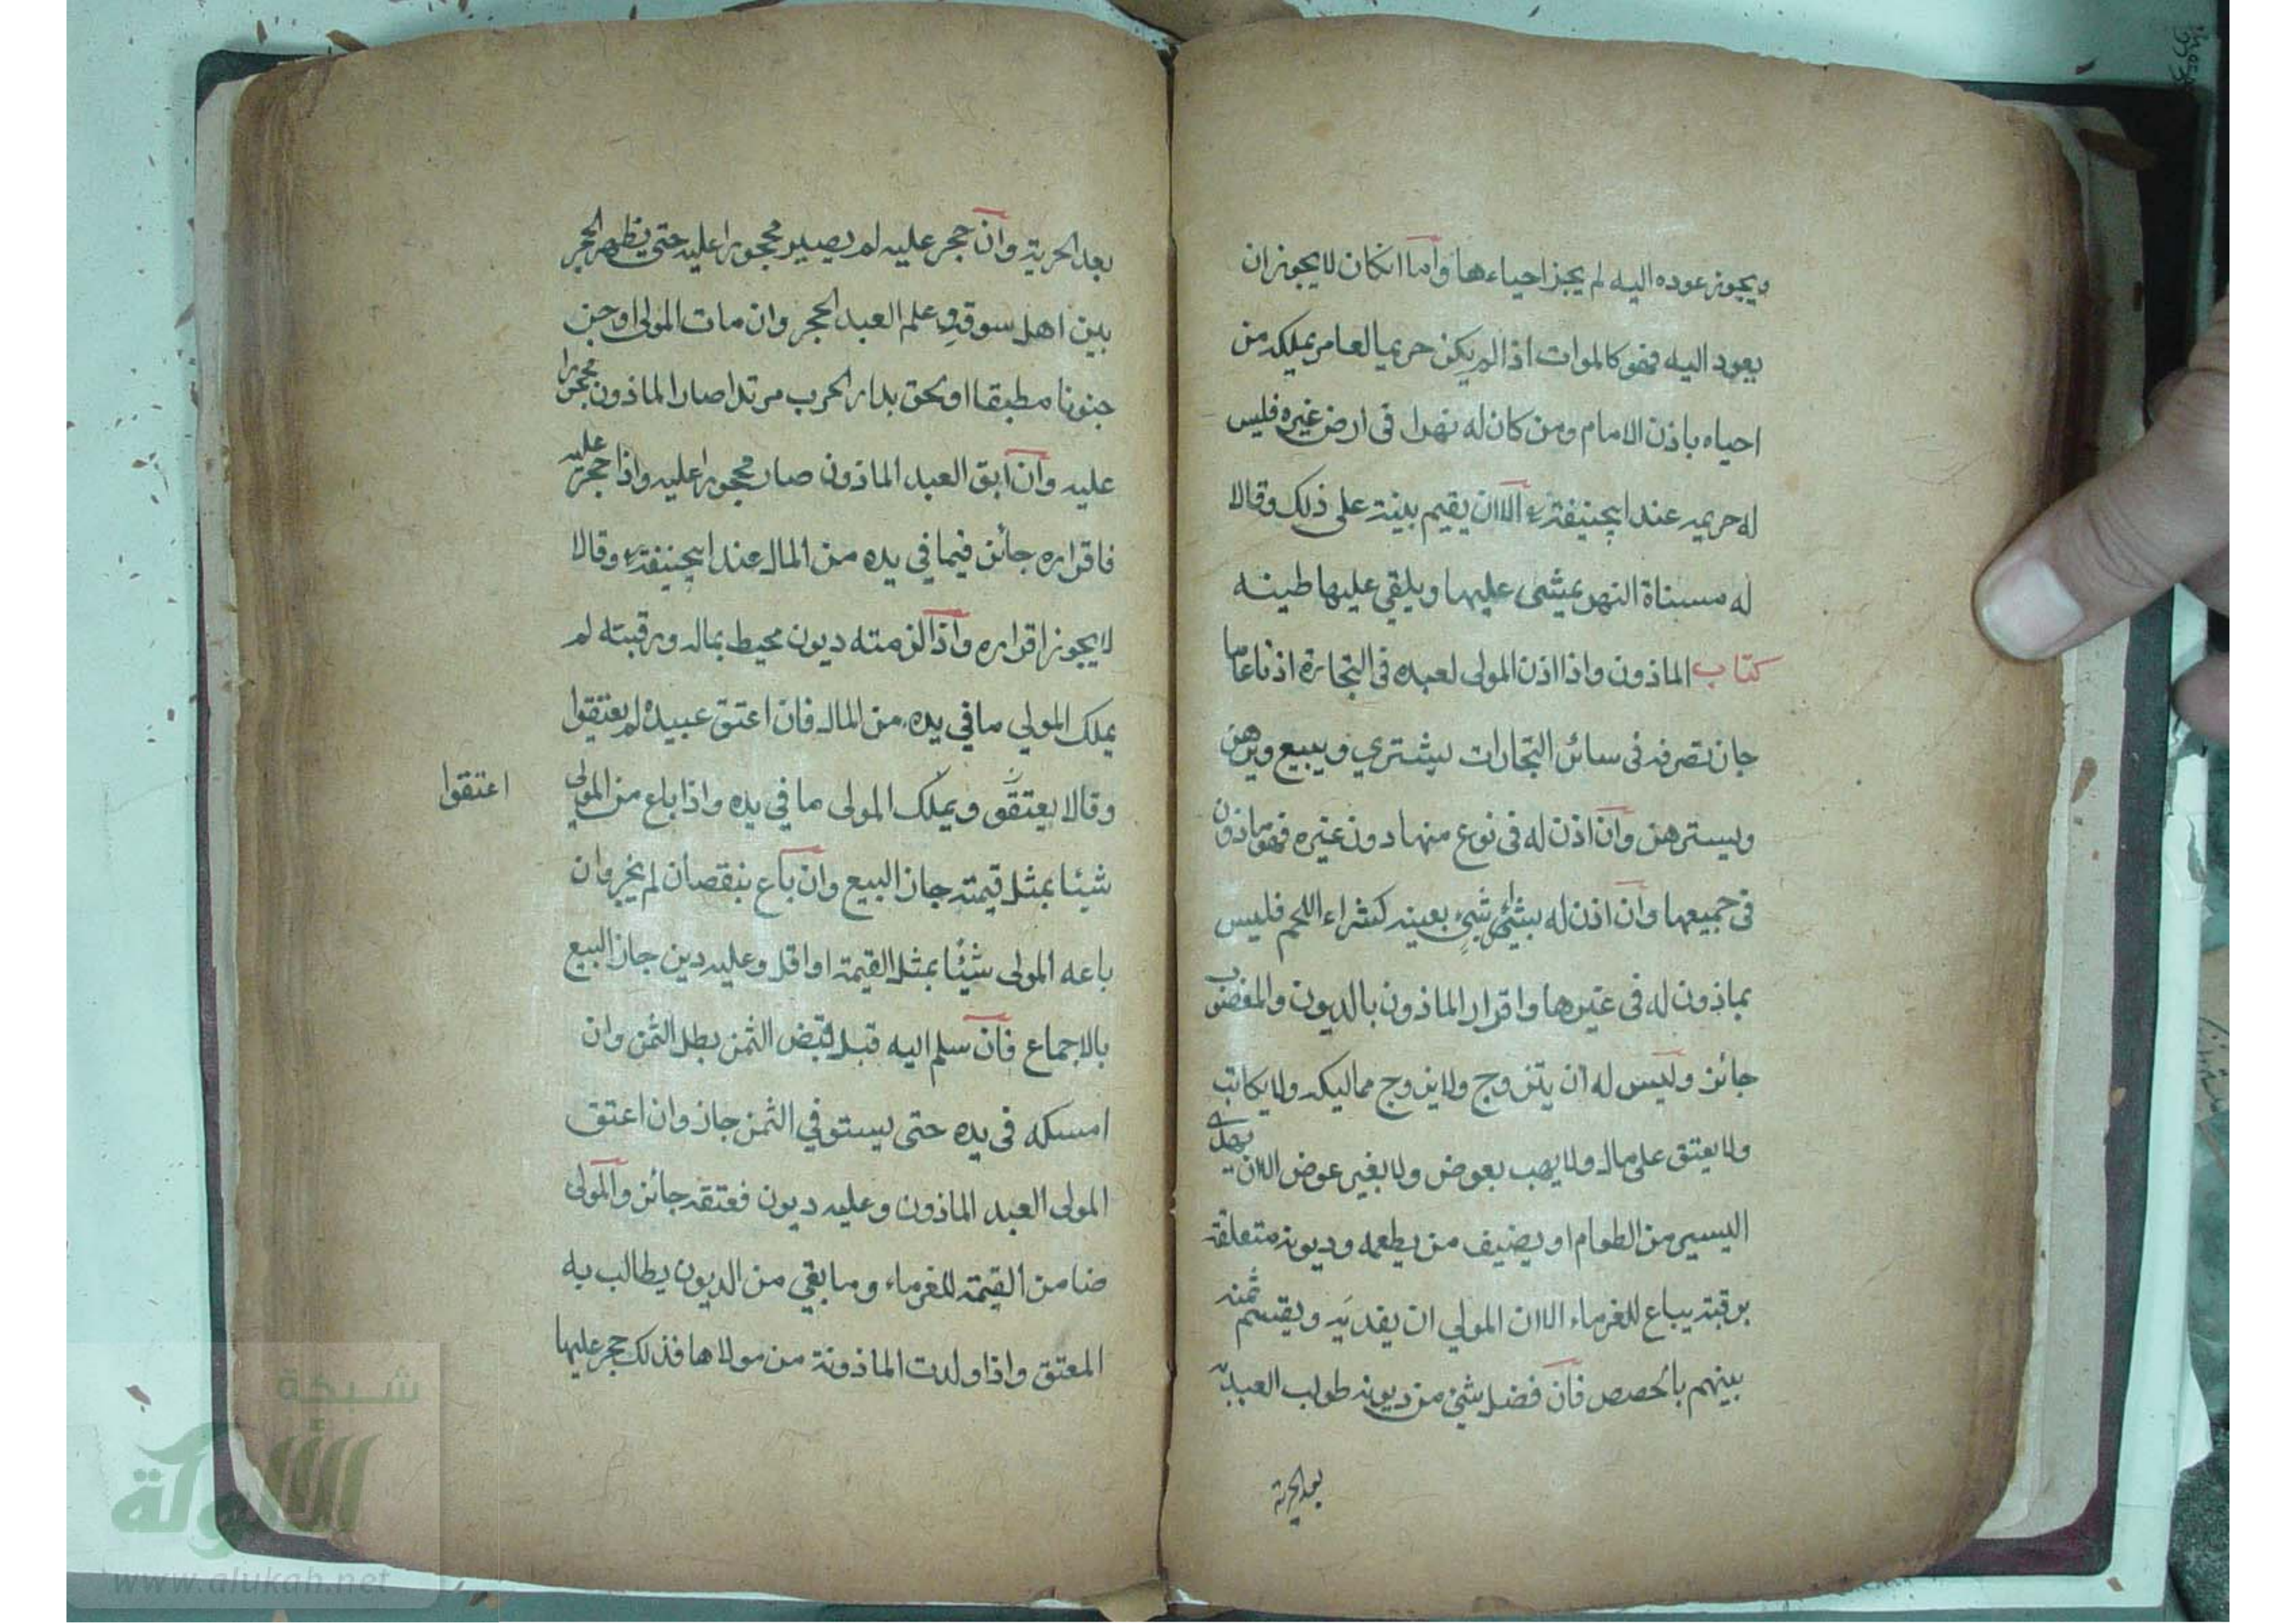 ويجوز عوده اليه لم يجز احياءها واما اكان لا يجوز ان
يعود اليه فهو كالموات اذا لم يكن حريما لعامر يملكه من
احياه باذن الامام ومن كان له نهرا فى ارض غيره فليس
له حريمه عند ابيحنيفة رح الا ان يقيم بينة على ذلك وقالا
له مسناة النهر يمشى عليها ويلقي عليها طينه
كتاب الماذون واذا اذن المولى لعبده فى التجارة اذنا عاما
جاز تصرفه فى سائر التجارات يشتري ويبيع ويرهن
ويسترهن وان اذن له فى نوع منها دون غيره فهو ماذون
فى جميعها وان اذن له بشئ شيء بعينه كشراء اللحم فليس
بماذون له فى غيرها واقرار الماذون بالديون والمغصوب
جائز وليس له ان يتزوج ولا يزوج مماليكه ولا يكاتب
ولا يعتق على مال ولا يهب بعوض ولا بغير عوض الا ان يهدى
اليسير من الطعام او يضيف من يطعمه وديونه متعلقة
برقبته يباع للغرماء الا ان المولي ان يفديه ويقسم ثمنه
بينهم بالحصص فان فضل شئ من ديونه طولب العبد به
بعد الحرية
بعد الحرية وان حجر عليه لم يصير محجورا عليه حتى يظهر الحجر
بين اهل سوقه وعلم العبد الحجر وان مات المولى او جن
جنونا مطبقا او لحق بدار الحرب مرتدا صار الماذون محجورا
عليه وان ابق العبد الماذون صار محجورا عليه واذا حجر عليه
فاقراره جائز فيما في يده من المال عند ابيحنيفة رح وقالا
لا يجوز اقراره واذا لزمته ديون محيط بماله ورقبته لم
يملك المولي ما في يده من المال فان اعتق عبيده لم يعتقوا
وقالا يعتقو ويملك المولى ما في يده واذا باع من المولى
اعتقوا
شيئا بمثل قيمته جاز البيع وان باع بنقصان لم يجز وان
باعه المولى شيئا بمثل القيمة او اقل وعليه دين جاز البيع
بالاجماع فان سلم اليه قبل قبض الثمن بطل الثمن وان
امسكه فى يده حتى يستوفي الثمن جاز وان اعتق
المولى العبد الماذون وعليه ديون فعتقه جائز والمولى
ضامن القيمة للغرماء وما بقي من الديون يطالب به
المعتق واذا ولدت الماذونة من مولاها فذلك حجر عليها
شبكة
الألوكة
www.alukah.net